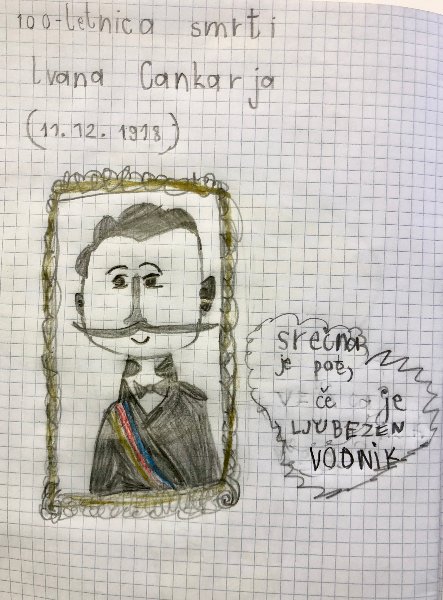 100-letnica smrti
Ivana Cankarja
(11.12.1918)
srečna
je pot,
če je
LJUBEZEN
VODNIK